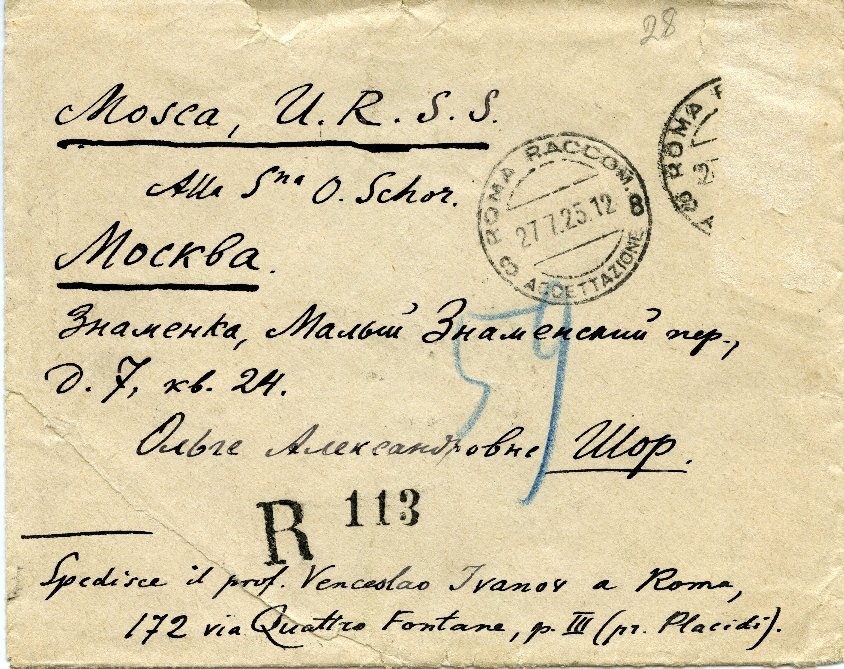 28
Mosca, U. R. S. S.
Alla Sna O. Schor.
ROMA RACCOM. 8
27 7. 25. 12
8 ACCETTAZIONE
8 ROMA
Москва.
Знаменка, Малый Знаменский пер.,
д. 7, кв. 24.
59
Ольге Александровне Шор.
R 113
Spedisce il prof. Venceslao Ivanov a Roma,
172 via Quattro Fontane, p. III (pr. Placidi).